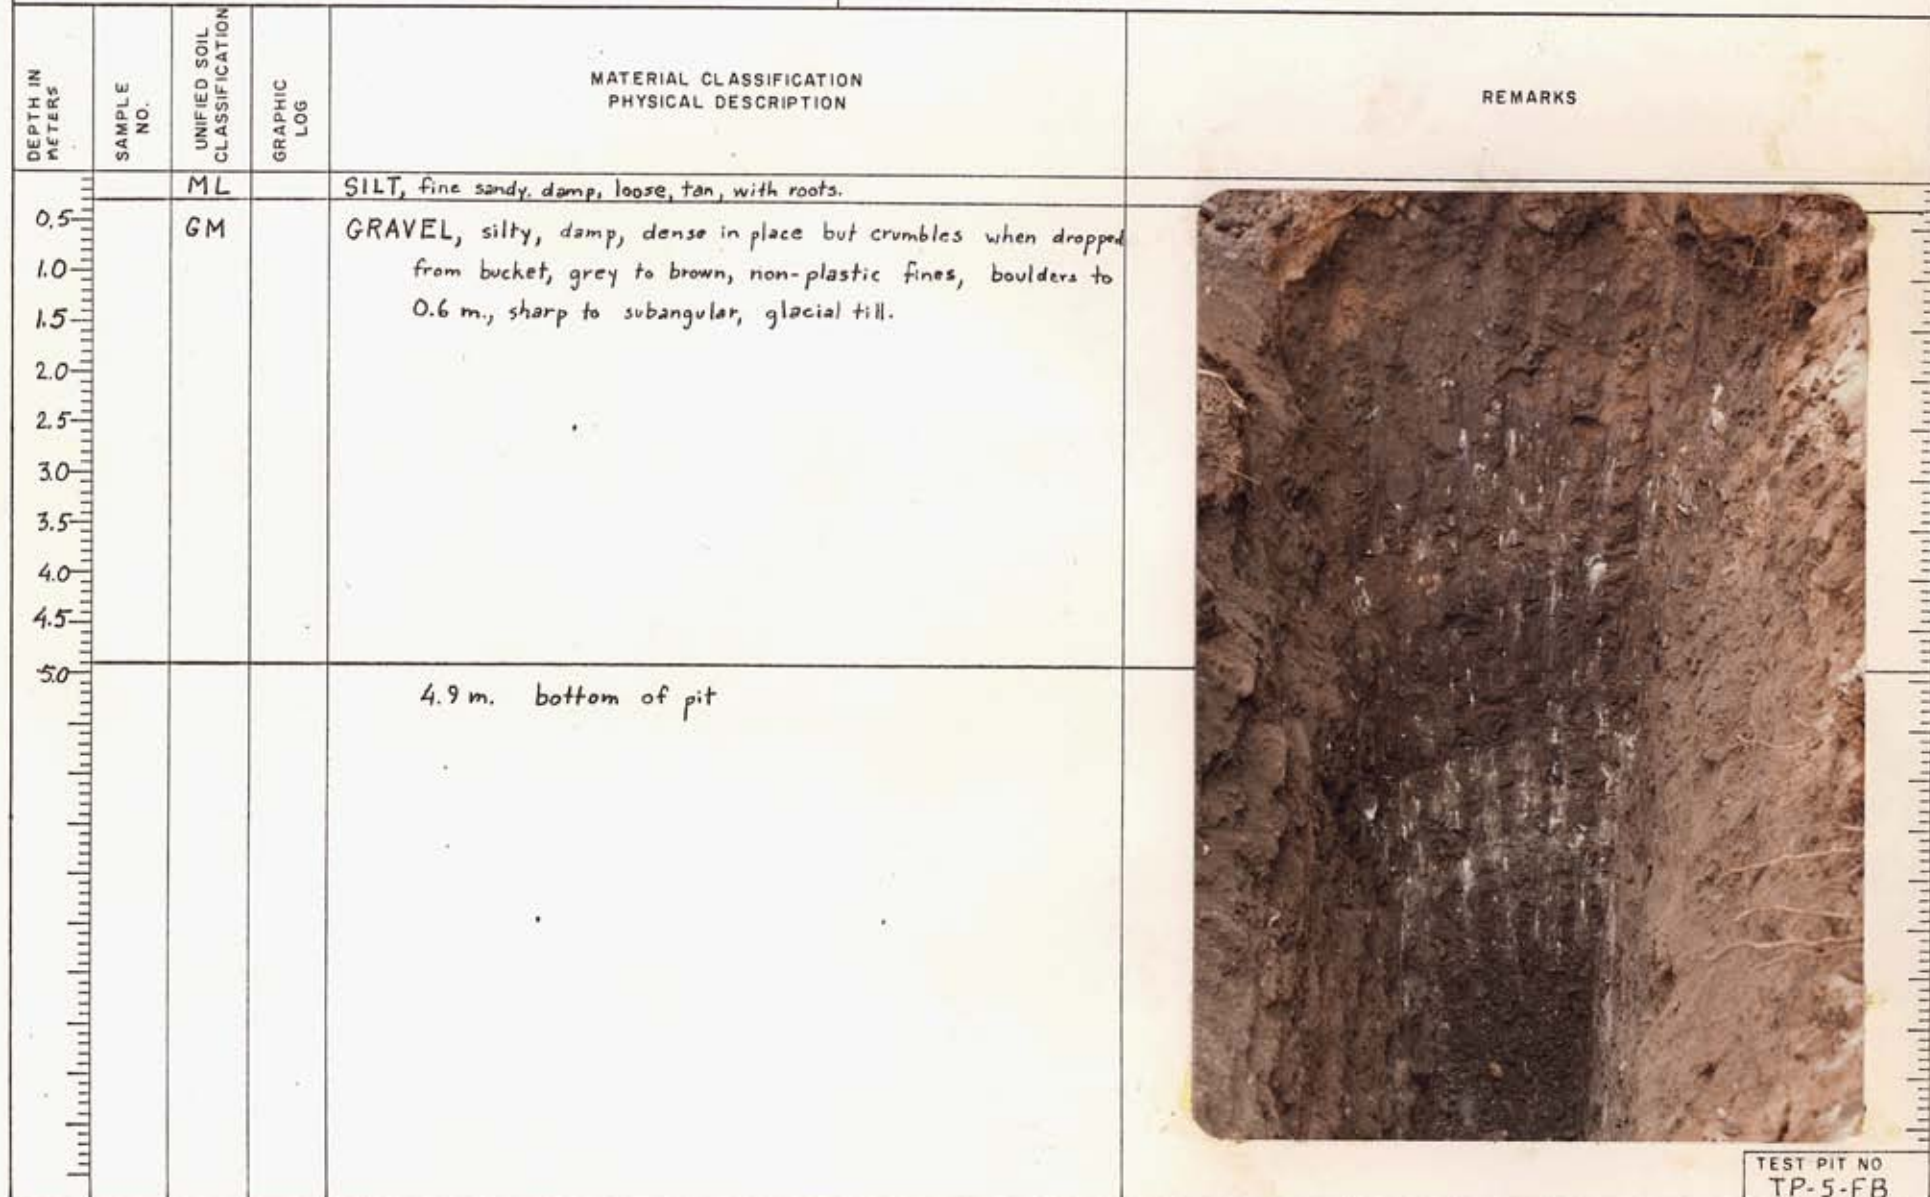 DEPTH IN
METERS
SAMPLE
NO.
UNIFIED SOIL
CLASSIFICATION
GRAPHIC
LOG
MATERIAL CLASSIFICATION
PHYSICAL DESCRIPTION
REMARKS
ML
SILT, fine sandy. damp, loose, tan, with roots.
0.5
GM
GRAVEL, silty, damp, dense in place but crumbles when dropped
1.0
from bucket, grey to brown, non-plastic fines, boulders to
1.5
0.6 m., sharp to subangular, glacial till.
2.0
2.5
3.0
3.5
4.0
4.5
5.0
4.9 m. bottom of pit
TEST PIT NO
TP-5-FB